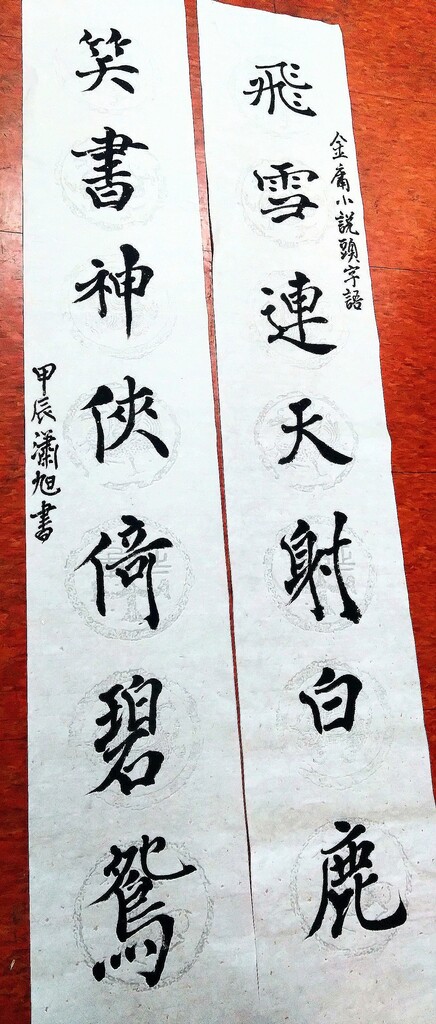 飛雪連天射白鹿
金庸小說頭字語
笑書神俠倚碧鴛
甲辰瀟旭書